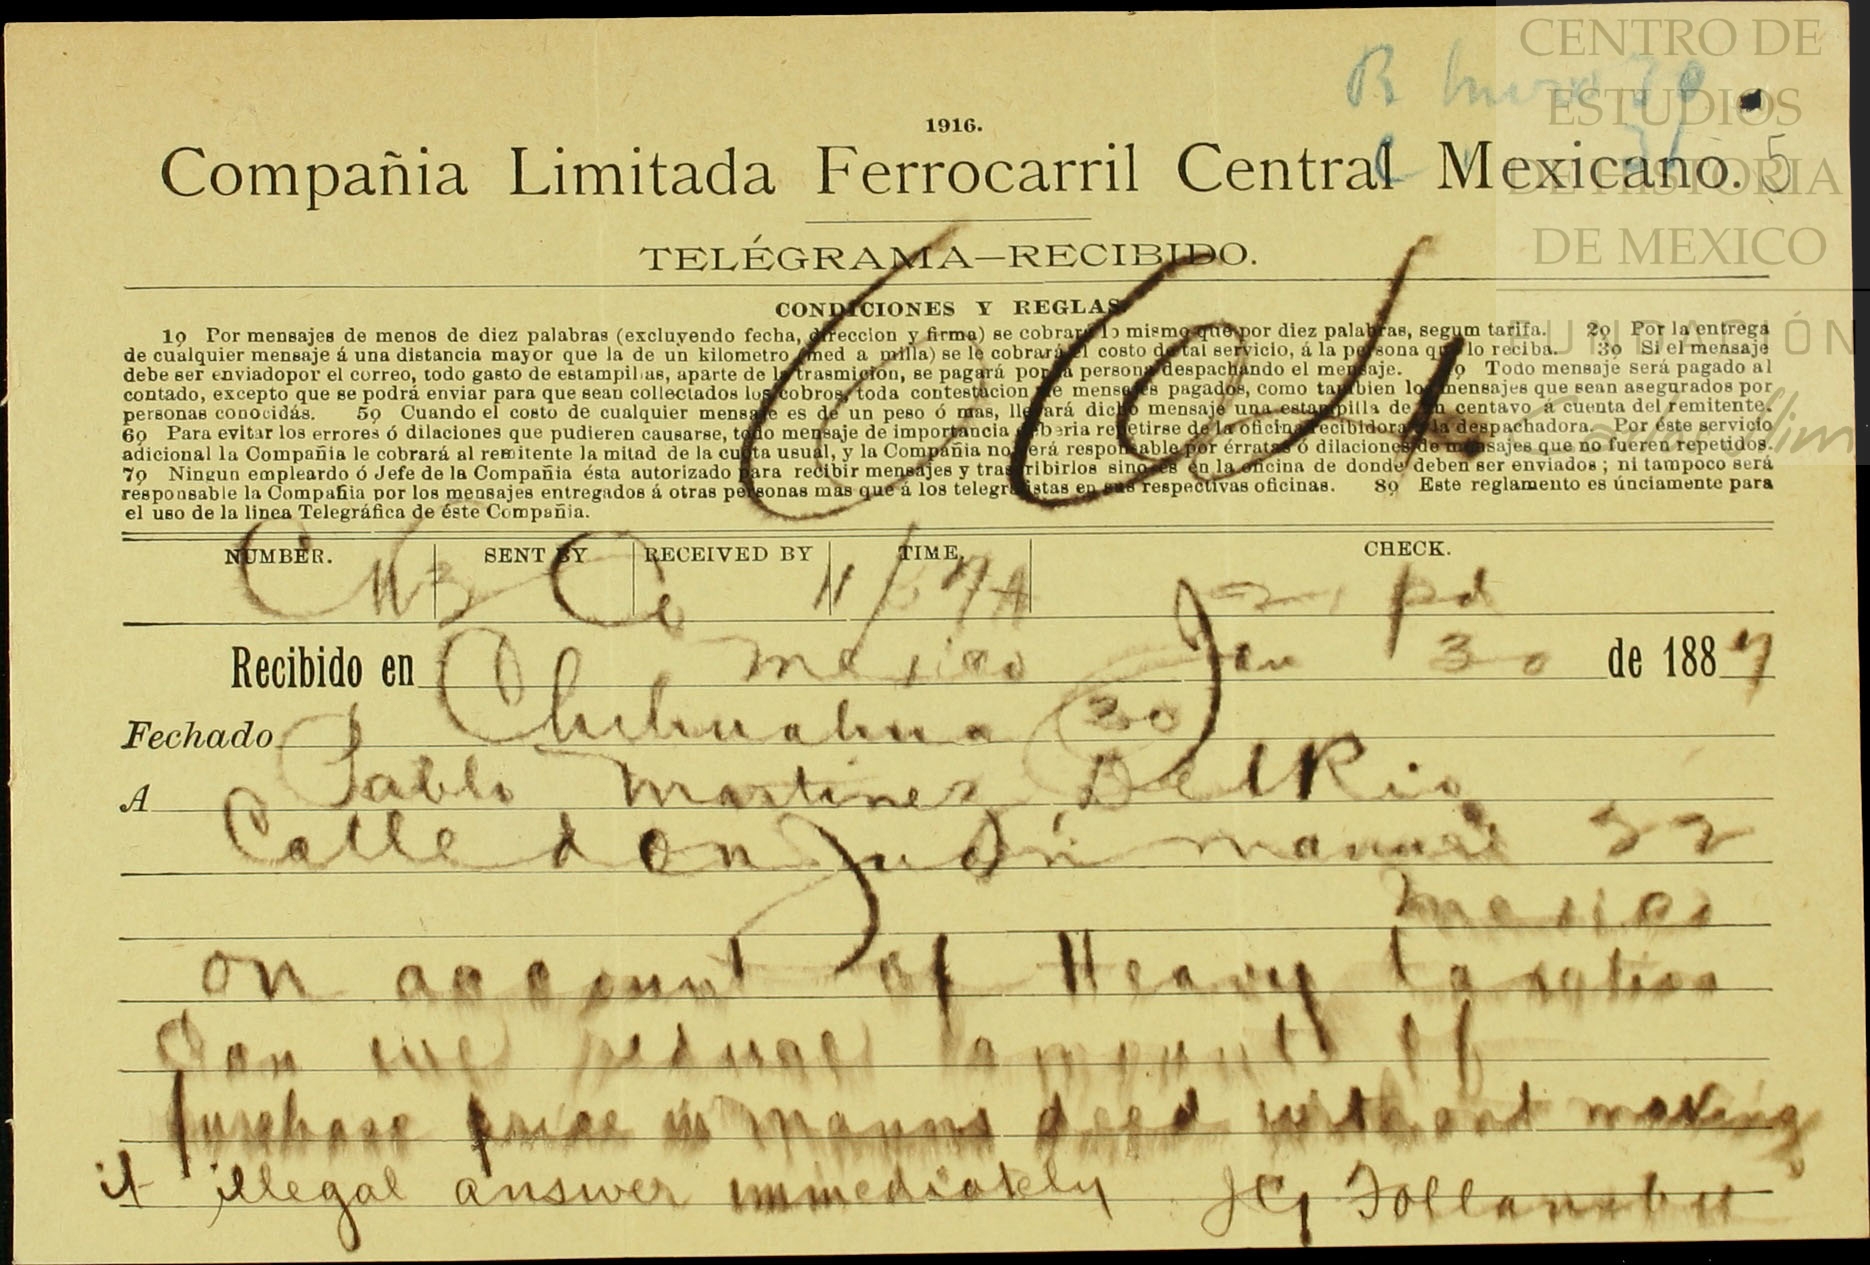 CENTRO DE
ESTUDIOS
DE HISTORIA
DE MEXICO
FUNDACIÓN
R 30
31
5
1916.
Compañia Limitada Ferrocarril Central Mexicano.
TELÉGRAMA—RECIBIDO.
CONDICIONES Y REGLAS.
1º Por mensajes de menos de diez palabras (excluyendo fecha, direccion y firma) se cobrará lo mismo que por diez palabras, segum tarifa. 2º Por la entrega
de cualquier mensaje á una distancia mayor que la de un kilometro (med a milla) se le cobrará el costo de tal servicio, á la persona que lo reciba. 3º Si el mensaje
debe ser enviadopor el correo, todo gasto de estampillas, aparte de la trasmicion, se pagará por la persona despachando el mensaje. 4º Todo mensaje será pagado al
contado, excepto que se podrá enviar para que sean collectados los cobros, toda contestacion de mensajes pagados, como tambien los mensajes que sean asegurados por
personas conocidás. 5º Cuando el costo de cualquier mensaje es de un peso ó mas, llevará dicho mensaje una estampilla de un centavo á cuenta del remitente.
6º Para evitar los errores ó dilaciones que pudieren causarse, todo mensaje de importancia deberia repetirse de la oficina recibidora á la despachadora. Por éste servicio
adicional la Compañia le cobrará al remitente la mitad de la cuota usual, y la Compañia no será responsable por érratas ó dilaciones de mensajes que no fueren repetidos.
7º Ningun empleardo ó Jefe de la Compañia ésta autorizado para recibir mensajes y trascribirlos sino es en la oficina de donde deben ser enviados; ni tampoco será
responsable la Compañia por los mensajes entregados á otras personas mas que á los telegrafistas en sus respectivas oficinas. 8º Este reglamento es únciamente para
el uso de la linea Telegráfica de éste Compañia.
NUMBER. SENT BY RECEIVED BY TIME. CHECK.
21 Pd
Recibido en Mexico Jan 30 de 1887
Fechado Chihuahua 30
A Pablo Martinez Del Rio
Calle don Juan Manuel 22
Mexico
on account of Heavy taxation
Can we reduce amount of
purchase price in Manns deed without making
it illegal answer immediately JG Follansbee